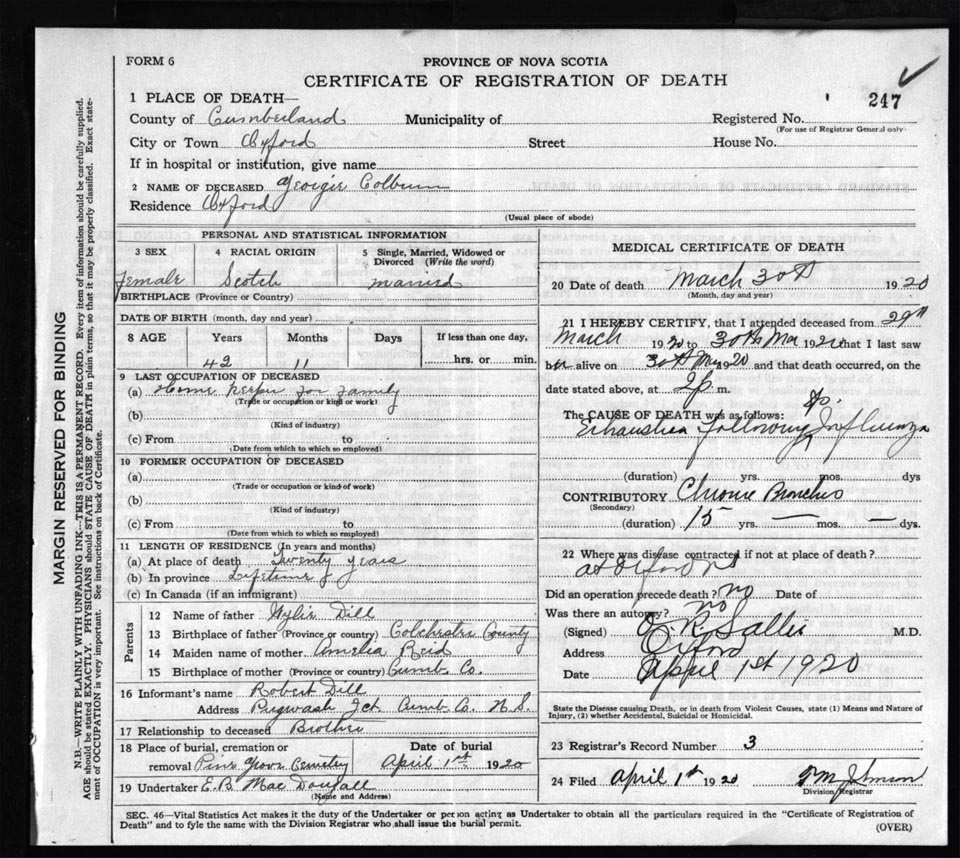 FORM 6
PROVINCE OF NOVA SCOTIA
CERTIFICATE OF REGISTRATION OF DEATH
247
1 PLACE OF DEATH—
County of Cumberland Municipality of Registered No.
(For use of Registrar General only)
City or Town Oxford Street House No.
If in hospital or institution, give name
2 NAME OF DECEASED Georgie Colburn
Residence Oxford
(Usual place of abode)
PERSONAL AND STATISTICAL INFORMATION
3 SEX 4 RACIAL ORIGIN 5 Single, Married, Widowed or Divorced (Write the word)
Female Scotch Married
BIRTHPLACE (Province or Country)
DATE OF BIRTH (month, day and year)
8 AGE Years Months Days If less than one day,
42 11 hrs. or min.
9 LAST OCCUPATION OF DECEASED
(a) Home keeper for family
(Trade or occupation or kind or work)
(b)
(Kind of industry)
(c) From to
(Date from which to which so employed)
10 FORMER OCCUPATION OF DECEASED
(a)
(Trade or occupation or kind of work)
(b)
(Kind of industry)
(c) From to
(Date from which to which so employed)
11 LENGTH OF RESIDENCE (In years and months)
(a) At place of death Twenty years
(b) In province Lifetime
(c) In Canada (if an immigrant)
Parents
12 Name of father Wylie Dill
13 Birthplace of father (Province or country) Colchester County
14 Maiden name of mother Amelia Reid
15 Birthplace of mother (Province or country) Cumb Co.
16 Informant's name Robert Dill
Address Pugwash Jct Cumb Co. N.S.
17 Relationship to deceased Brother
18 Place of burial, cremation or removal Pine Grove Cemetery
Date of burial
April 1st 1920
19 Undertaker E.B. MacDougall
(Name and Address)
MEDICAL CERTIFICATE OF DEATH
20 Date of death March 30th 1920
(Month, day and year)
21 I HEREBY CERTIFY, that I attended deceased from 29th
March 1920 to 30th Mar 1920 that I last saw
her alive on 30th Mar 1920 and that death occurred, on the
date stated above, at 2 p. m.
The CAUSE OF DEATH was as follows:
Exhaustion following Influenza
(duration) yrs. mos. dys
CONTRIBUTORY Chronic Bronchitis
(Secondary)
(duration) 15 yrs. — mos. — dys.
22 Where was disease contracted if not at place of death?
at Oxford NS
Did an operation precede death? no Date of
Was there an autopsy? no
(Signed) M.D.
Address Oxford
Date April 1st 1920
State the Disease causing Death, or in death from Violent Causes, state (1) Means and Nature of
Injury, (2) whether Accidental, Suicidal or Homicidal.
23 Registrar's Record Number 3
24 Filed April 1st 1920 Johnson
Division Registrar
SEC. 46—Vital Statistics Act makes it the duty of the Undertaker or person acting as Undertaker to obtain all the particulars required in the "Certificate of Registration of
Death" and to fyle the same with the Division Registrar who shall issue the burial permit.
(OVER)
MARGIN RESERVED FOR BINDING
N.B.—WRITE PLAINLY WITH UNFADING INK—THIS IS A PERMANENT RECORD. Every item of information should be carefully supplied.
AGE should be stated EXACTLY. PHYSICIANS should STATE CAUSE OF DEATH in plain terms, so that it may be properly classified. Exact state-
ment of OCCUPATION is very important. See instructions on back of Certificate.